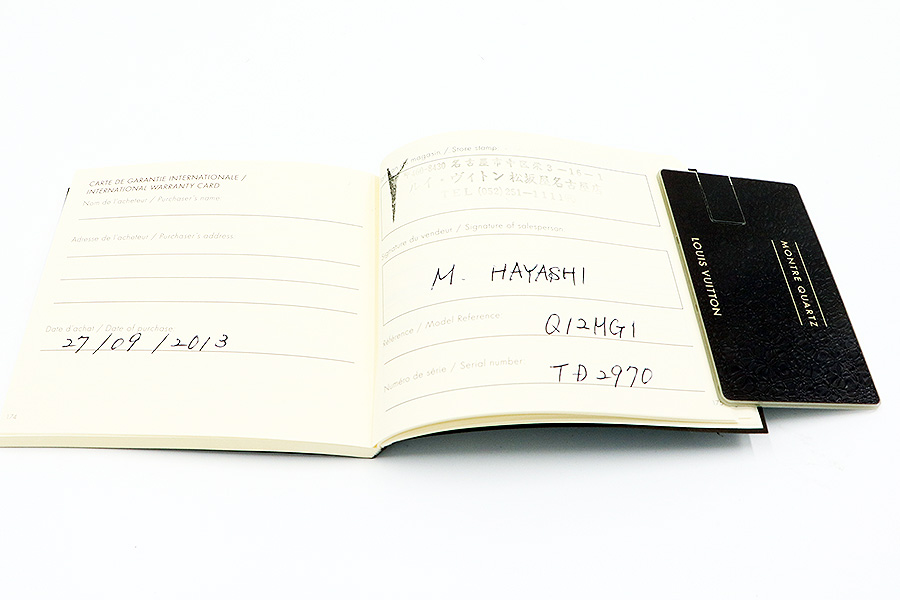 CARTE DE GARANTIE INTERNATIONALE /
INTERNATIONAL WARRANTY CARD
Nom de l'acheteur / Purchaser's name
Adresse de l'acheteur / Purchaser's address
Date d'achat / Date of purchase
27/09/2013
174
magasin / Store stamp
名古屋市中区栄3-16-1
ルイ・ヴィトン 松坂屋名古屋店
TEL (052) 251-1111
Signature du vendeur / Signature of salesperson
M. HAYASHI
Référence / Model Reference
Q12MG1
Numéro de série / Serial number
TD2970
MONTRE QUARTZ
LOUIS VUITTON